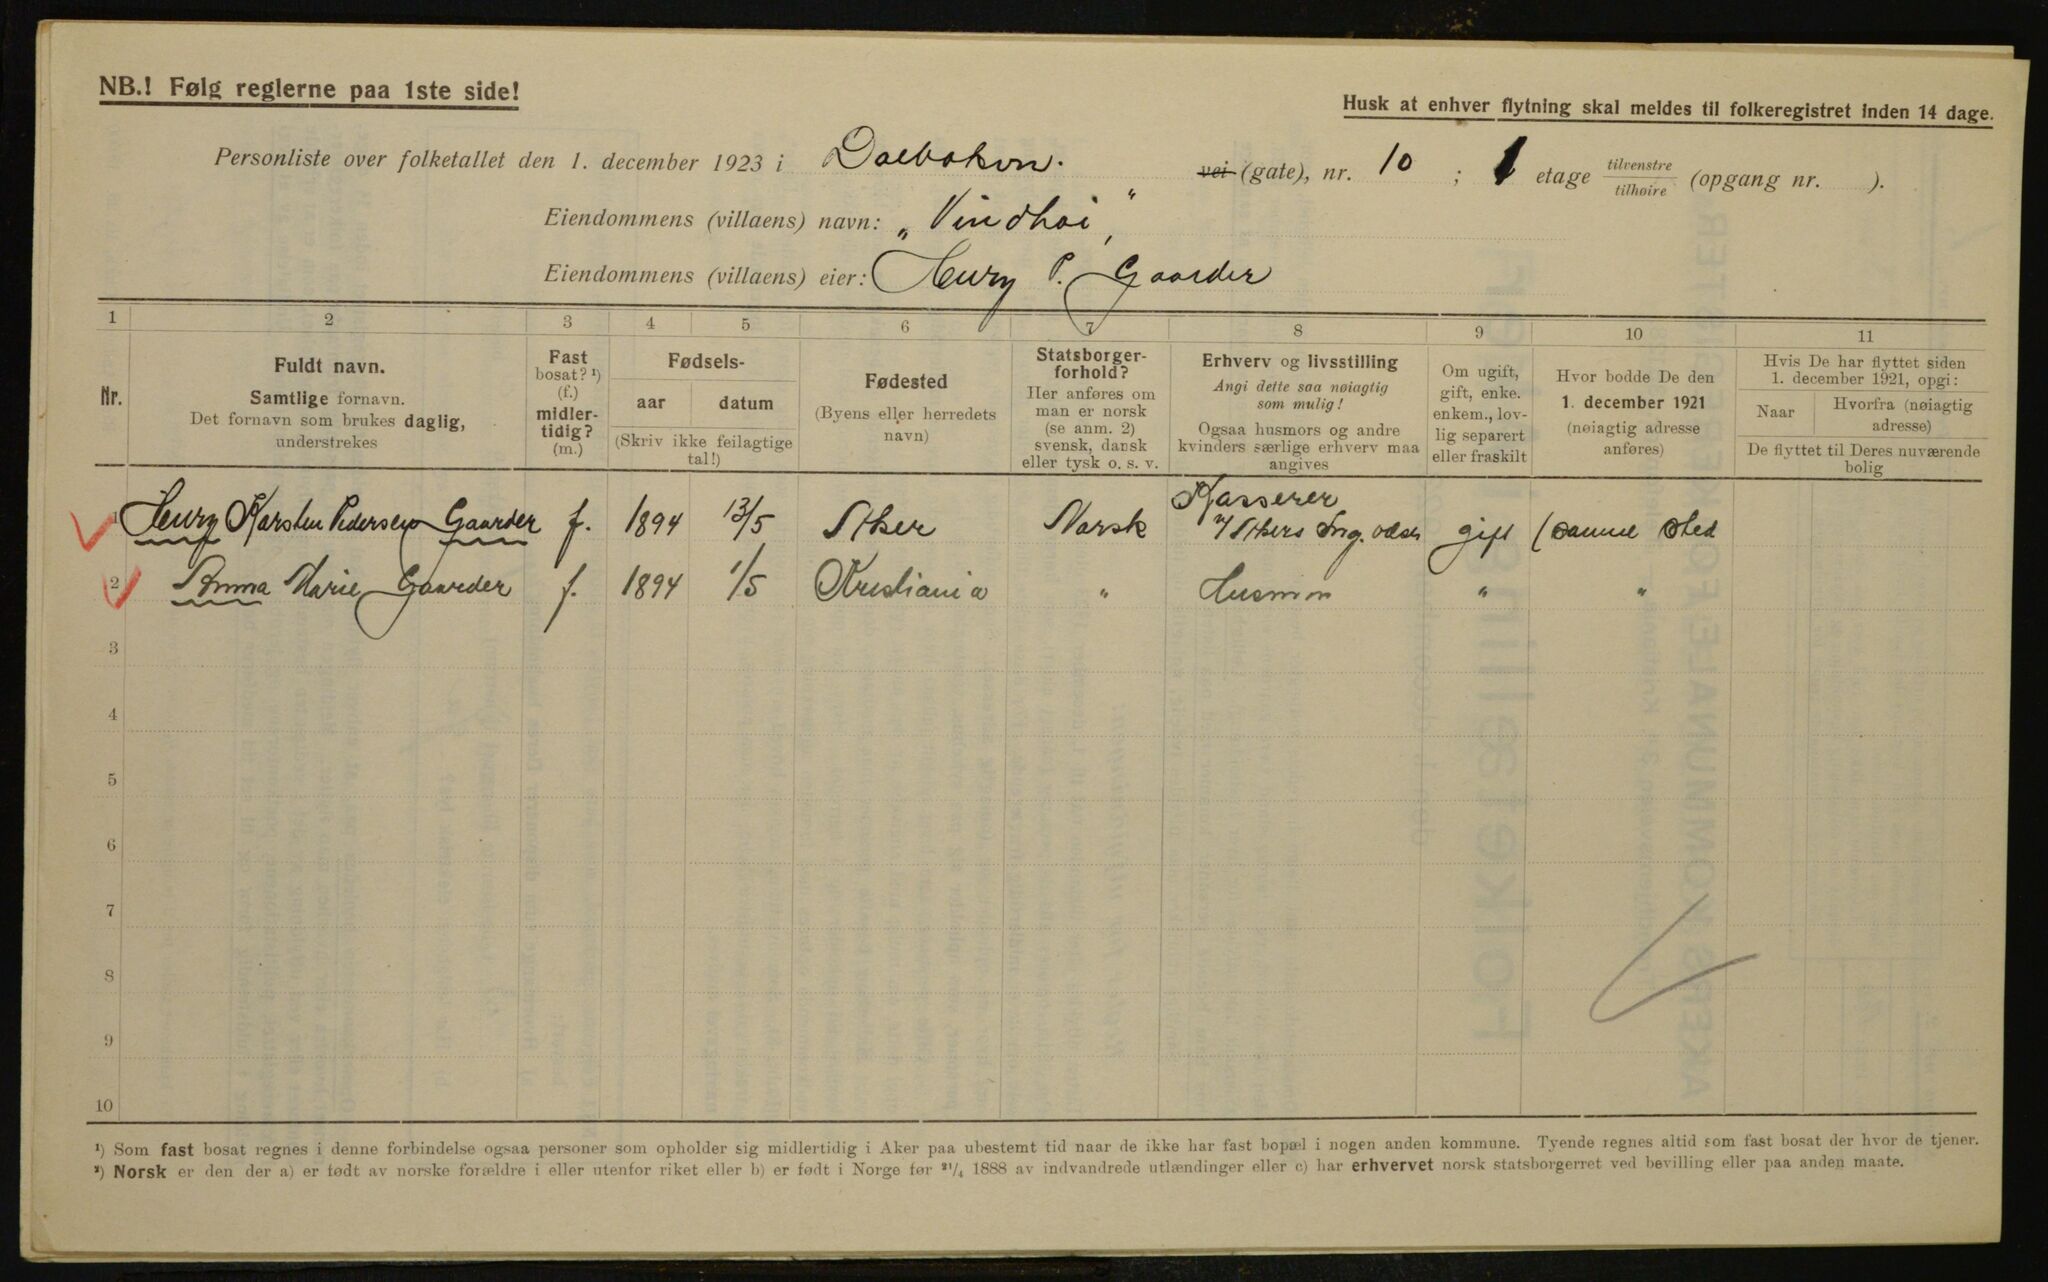 NB.! Følg reglerne paa 1ste side!
Husk at enhver flytning skal meldes til folkeregistret inden 14 dage.
Personliste over folketallet den 1. december 1923 i Dalbakvn. vei (gate), nr. 10 ; 1 etage tilvenstre tilhøire (opgang nr. ).
Eiendommens (villaens) navn: „Vindhøi"
Eiendommens (villaens) eier: Henry P. Gaarder
1 2 3 4 5 6 7 8 9 10 11
Nr.
Fuldt navn.
Samtlige fornavn.
Det fornavn som brukes daglig,
understrekes
Fast
bosat? ¹)
(f.)
midler-
tidig?
(m.)
Fødsels-
aar datum
(Skriv ikke feilagtige
tal!)
Fødested
(Byens eller herredets
navn)
Statsborger-
forhold?
Her anføres om
man er norsk
(se anm. 2)
svensk, dansk
eller tysk o. s. v.
Erhverv og livsstilling
Angi dette saa nøiagtig
som mulig!
Ogsaa husmors og andre
kvinders særlige erhverv maa
angives
Om ugift,
gift, enke.
enkem., lov-
lig separert
eller fraskilt
Hvor bodde De den
1. december 1921
(nøiagtig adresse
anføres)
Hvis De har flyttet siden
1. december 1921, opgi:
Naar
Hvorfra (nøiagtig
adresse)
De flyttet til Deres nuværende
bolig
Kasserer
1 Henry Karsten Pedersen Gaarder f. 1894 13/5 Aker Norsk v/ Akers Ing. gift samme sted
2 Anna Marie Gaarder f. 1894 1/5 Kristiania " Husmor " "
3
4
5
6
7
8
9
10
¹) Som fast bosat regnes i denne forbindelse ogsaa personer som opholder sig midlertidig i Aker paa ubestemt tid naar de ikke har fast bopæl i nogen anden kommune. Tyende regnes altid som fast bosat der hvor de tjener.
²) Norsk er den der a) er født av norske forældre i eller utenfor riket eller b) er født i Norge før 21/4 1888 av indvandrede utlændinger eller c) har erhvervet norsk statsborgerret ved bevilling eller paa anden maate.